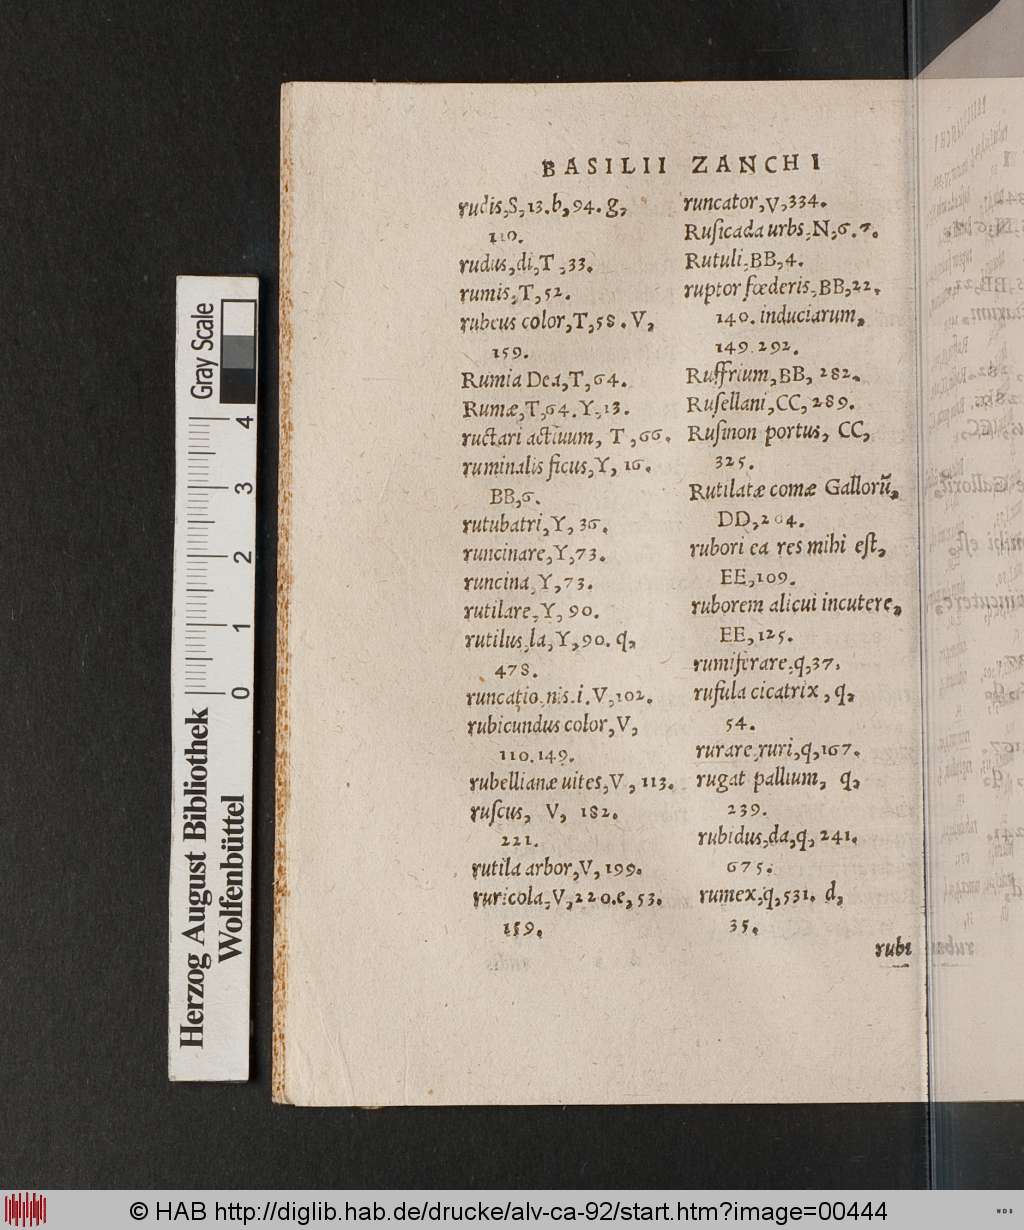 BASILII ZANCHI
rudis,S,13.b,94.g,
110.
rudus,di,T,33.
rumis,T,52.
rubeus color,T,58.V,
159.
Rumia Dea,T,64.
Rumæ,T,64.Y,13.
ructari actiuum, T,66.
ruminalis ficus,Y, 16.
BB,6.
rutubatri,Y, 36.
runcinare,Y,73.
runcina,Y,73.
rutilare,Y, 90.
rutilus,la,Y,90. q,
478.
runcatio,nis.i.V,102.
rubicundus color,V,
110.149.
rubellianæ uites,V, 113.
ruſcus, V, 182.
221.
rutila arbor,V,199.
ruricola,V,220.e,53.
159.
runcator,V,334.
Ruſicada urbs,N,6.7.
Rutuli,BB,4.
ruptor fœderis,BB,22.
140.induciarum,
149.292.
Ruffrium,BB, 282.
Ruſellani,CC,289.
Ruſinon portus, CC,
325.
Rutilatæ comæ Gallorũ,
DD,204.
rubori ea res mihi eſt,
EE,109.
ruborem alicui incutere,
EE,125.
rumiferare,q,37.
rufula cicatrix, q,
54.
rurare,ruri,q,167.
rugat pallium, q,
239.
rubidus,da,q,241.
675.
rumex,q,531. d,
35.
rubi
Gray Scale
0 1 2 3 4
Herzog August Bibliothek
Wolfenbüttel
© HAB http://diglib.hab.de/drucke/alv-ca-92/start.htm?image=00444